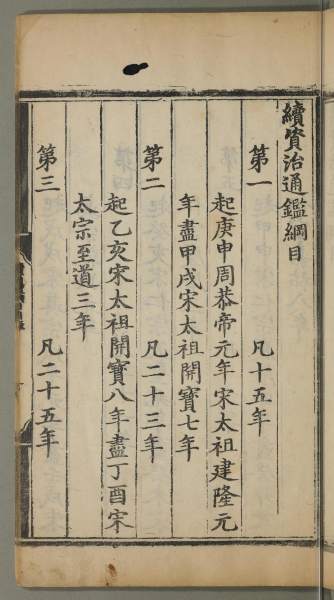 續資治通鑑綱目
第一 凡十五年
起庚申周恭帝元年宋太祖建隆元
年盡甲戌宋太祖開寶七年
第二 凡二十三年
起乙亥宋太祖開寶八年盡丁酉宋
太宗至道三年
第三 凡二十五年